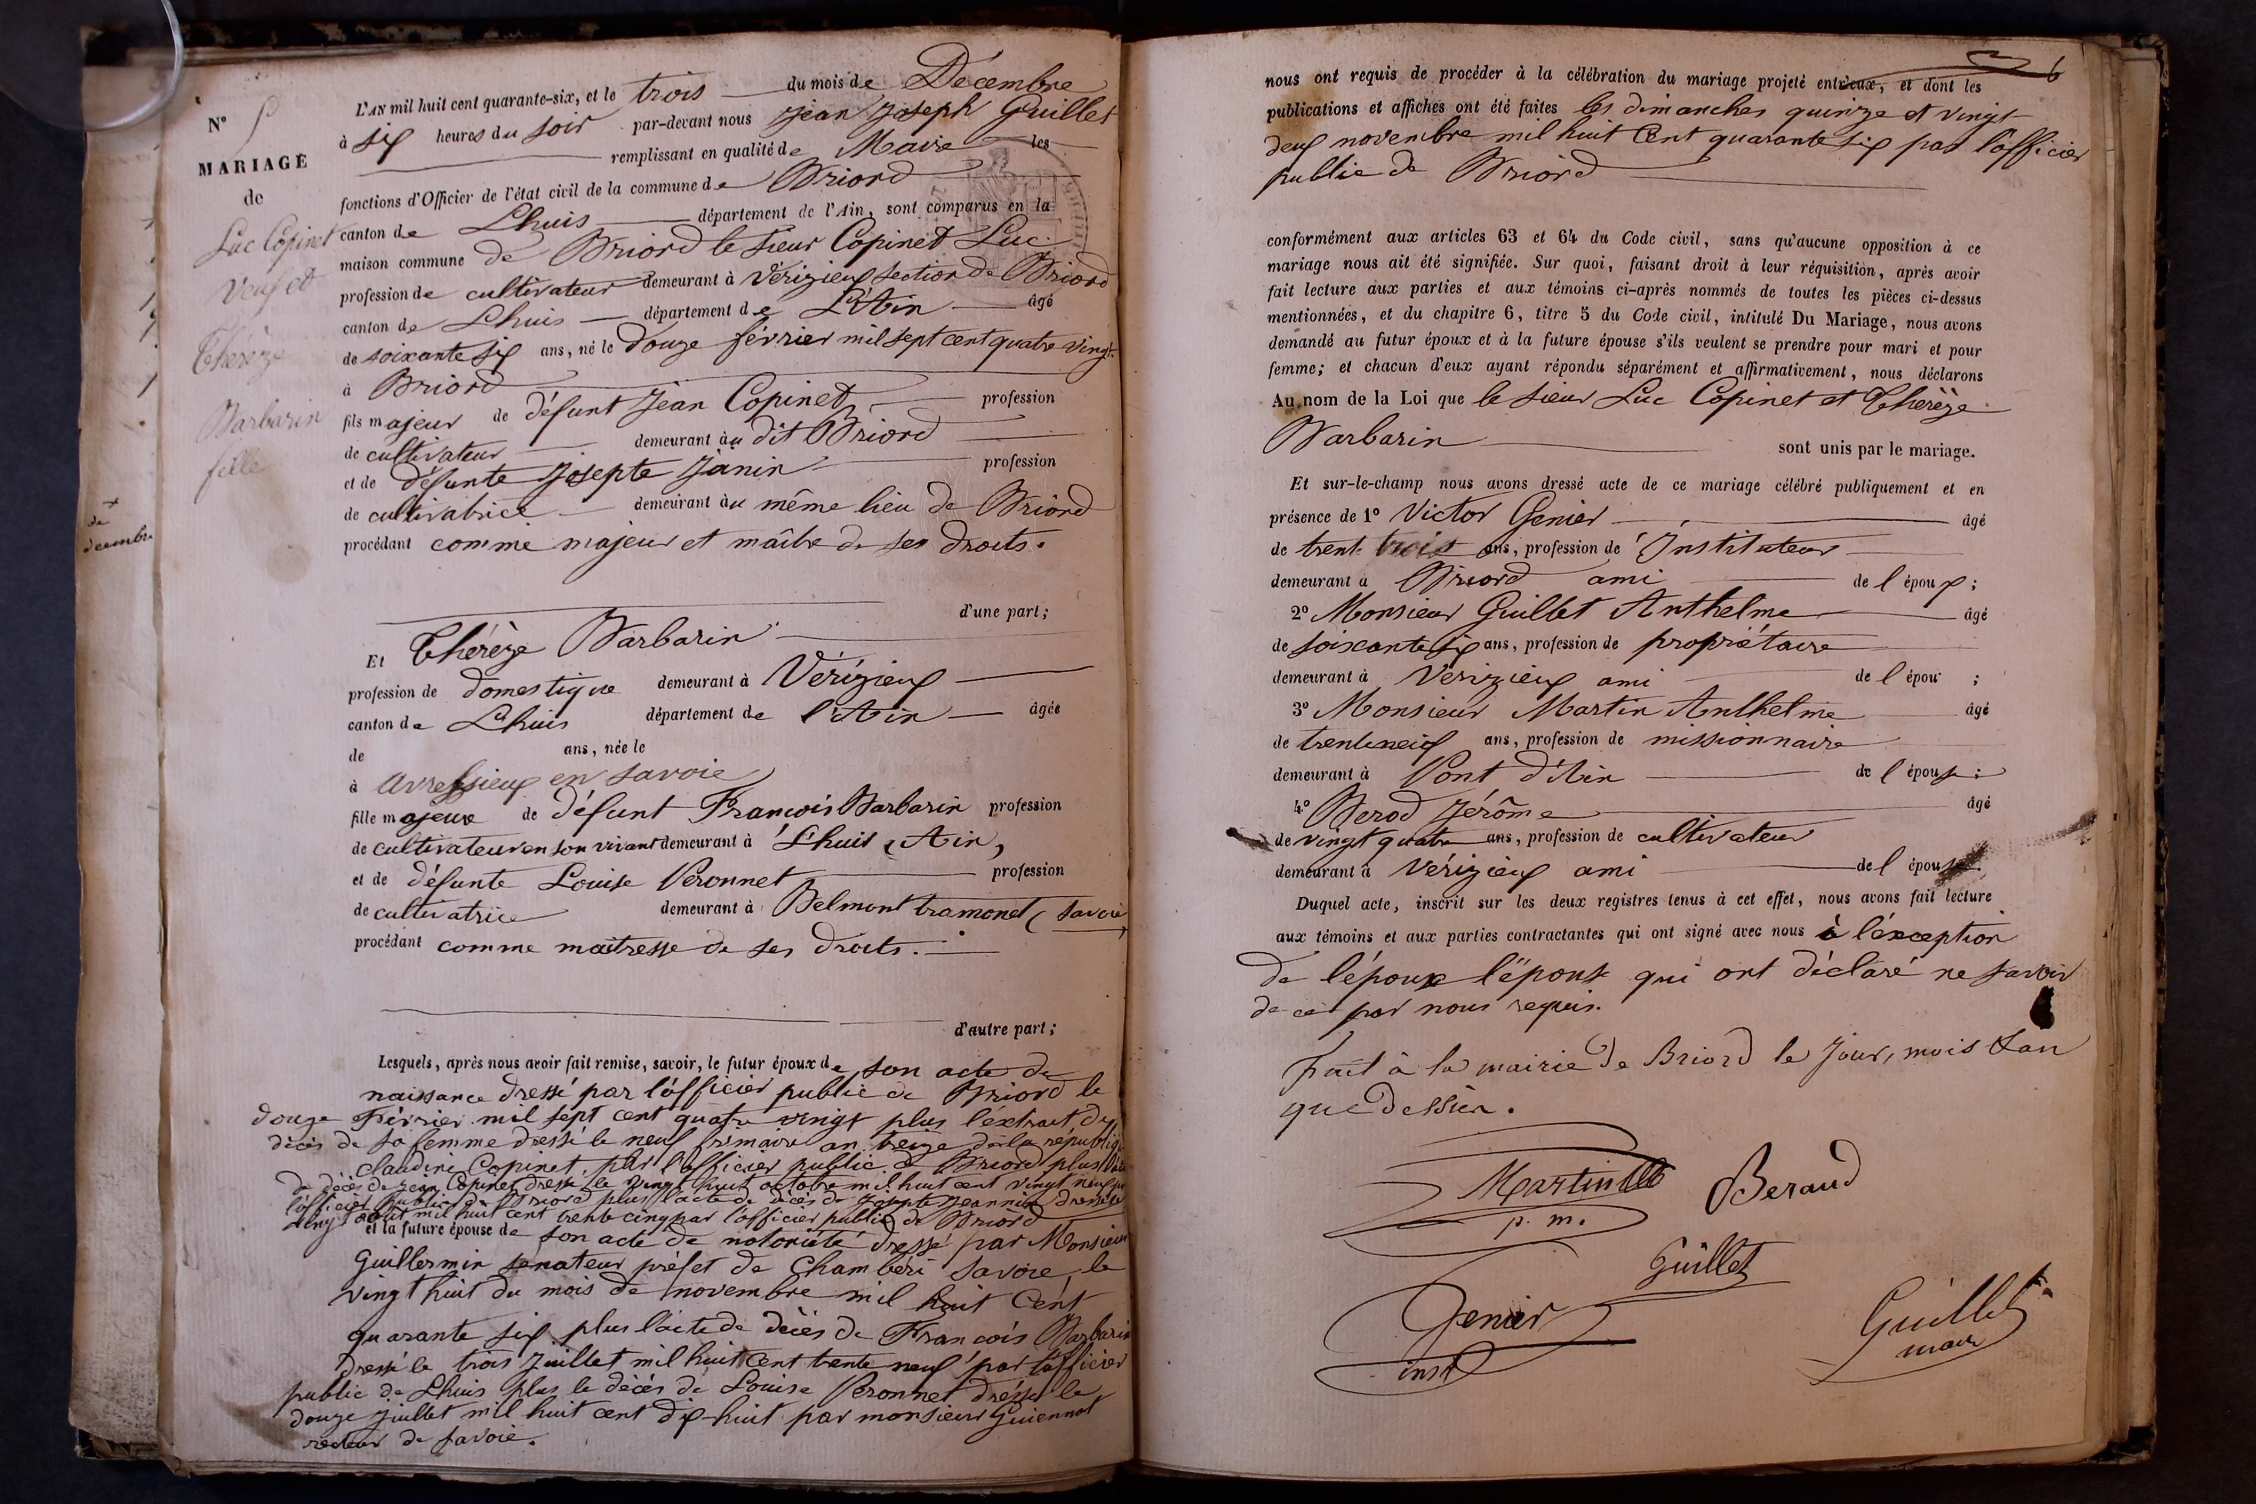 N° 5
MARIAGE
de
Luc Copinet
Veuf et
Thérèze
Barbarin
fille
de
décembre
L'AN mil huit cent quarante-six, et le trois du mois de Décembre
à six heures du soir par-devant nous Jean Joseph Guillet
remplissant en qualité de Maire les
fonctions d'Officier de l'état civil de la commune de Briord
canton de Lhuis département de l'Ain, sont comparus en la
maison commune de Briord le sieur Copinet Luc
profession de cultivateur demeurant à Vérizieux section de Briord
canton de Lhuis département de L'Ain âgé
de soixante six ans, né le douze février mil sept cent quatre vingt
à Briord
fils majeur de défunt Jean Copinet profession
de cultivateur demeurant au dit Briord
et de défunte Josepte Janin profession
de cultivatrice demeurant au même lieu de Briord
procédant comme majeur et maître de ses droits.
d'une part;
Et Thérèze Barbarin
profession de domestique demeurant à Vérizieux
canton de Lhuis département de l'Ain âgée
de ans, née le
à Avressieux en Savoie
fille majeure de défunt François Barbarin profession
de cultivateur en son vivant demeurant à Lhuis (Ain)
et de défunte Louise Peronnet profession
de cultivatrice demeurant à Belmont tramonet (Savoie)
procédant comme maîtresse de ses droits.
d'autre part;
Lesquels, après nous avoir fait remise, savoir, le futur époux de son acte de
naissance dressé par l'officier public de Briord le
douze Février mil sept cent quatre vingt plus l'extrait du
décès de sa femme dressé le neuf frimaire an treize de la républiq
claudine Copinet, par l'officier public de Briord plus
de décès de Jean Copinet dressé le vingt huit octobre mil huit cent vingt neuf
l'officier public de Briord plus l'acte de décès de Josepte Jeannin dressé le
vingt août mil huit cent trente cinq par l'officier public de Briord
et la future épouse de son acte de notoriété dressé par Monsieur
Guillermin senateur préfet de Chambéri Savoie, le
vingt huit du mois de novembre mil huit Cent
quarante six plus l'acte de décès de François Barbarin
dressé le trois Juillet mil huit Cent trente neuf par l'officier
public de Lhuis plus le décès de Louise Peronnet dréssé le
douze Juillet mil huit cent dix-huit par monsieur Guiennot
recteur de Savoie.
6
nous ont requis de procéder à la célébration du mariage projeté entr'eux, et dont les
publications et affiches ont été faites les dimanches quinze et vingt
deux novembre mil huit Cent quarante six par l'officier
public de Briord
conformément aux articles 63 et 64 du Code civil, sans qu'aucune opposition à ce
mariage nous ait été signifiée. Sur quoi, faisant droit à leur réquisition, après avoir
fait lecture aux parties et aux témoins ci-après nommés de toutes les pièces ci-dessus
mentionnées, et du chapitre 6, titre 5 du Code civil, intitulé Du Mariage, nous avons
demandé au futur époux et à la future épouse s'ils veulent se prendre pour mari et pour
femme; et chacun d'eux ayant répondu séparément et affirmativement, nous déclarons
Au nom de la Loi que le sieur Luc Copinet et Thérèze
Barbarin sont unis par le mariage.
Et sur-le-champ nous avons dressé acte de ce mariage célébré publiquement et en
présence de 1° Victor Genier âgé
de trente trois ans, profession de Instituteur
demeurant à Briord ami de l'époux;
2° Monsieur Guillet Anthelme âgé
de soixante six ans, profession de propriétaire
demeurant à Vérizieux ami de l'épou ;
3° Monsieur Martin Anthelme âgé
de trente neuf ans, profession de missionnaire
demeurant à Pont d'Ain de l'épouse;
4° Berod Jérôme âgé
de vingt quatre ans, profession de cultivateur
demeurant à Vérizieux ami de l'épouse.
Duquel acte, inscrit sur les deux registres tenus à cet effet, nous avons fait lecture
aux témoins et aux parties contractantes qui ont signé avec nous à l'exception
de l'époux l'épouse qui ont déclaré ne savoir
de ce par nous requis.
Fait à la mairie de Briord le jour, mois & an
que dessus.
Martin
p. m.
Beraud
Guillet
Genier
inst
Guillet
maire